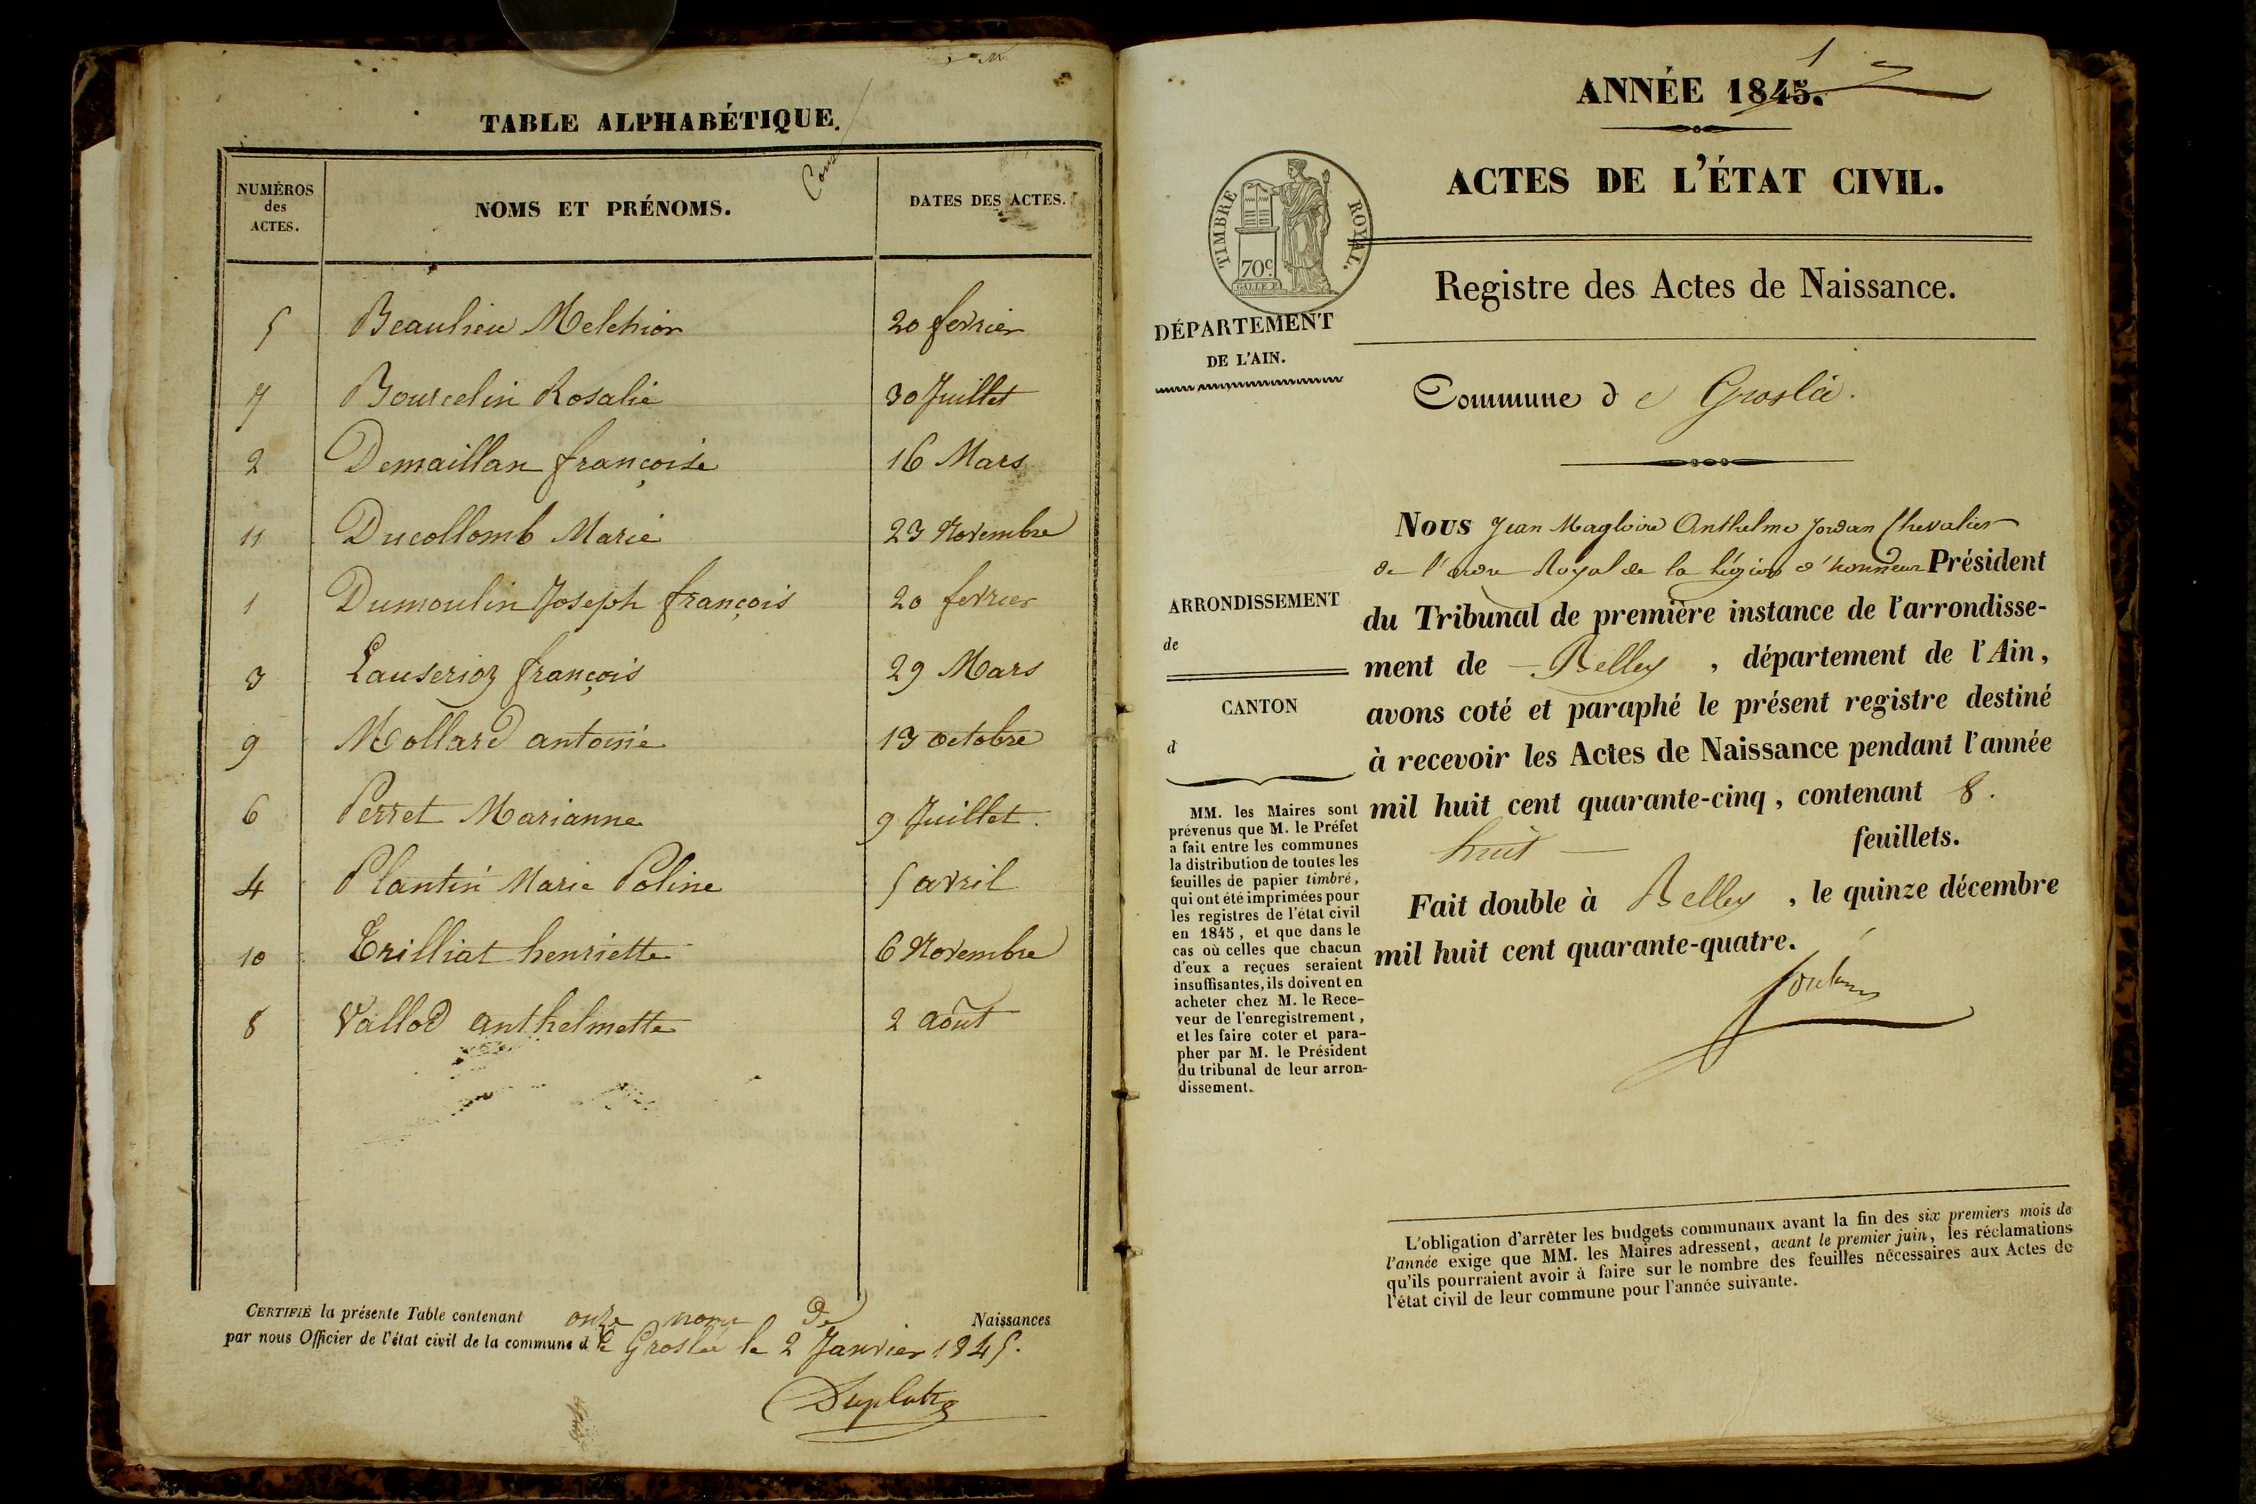 TABLE ALPHABÉTIQUE.
NUMÉROS
des
ACTES.
NOMS ET PRÉNOMS.
DATES DES ACTES.
5 Beaulieu Melchior 20 fevrier
7 Bourcelin Rosalie 30 Juillet
2 Demaillan françoise 16 Mars
11 Ducollomb Marie 23 Novembre
1 Dumoulin Joseph françois 20 fevrier
3 Lauserioz françois 29 Mars
9 Mollard antoine 13 octobre
6 Perret Marianne 9 Juillet.
4 Plantin Marie Poline 5 avril
10 Trilliat henriette 6 Novembre
8 Vallod anthelmette 2 août
CERTIFIÉ la présente Table contenant onze noms de Naissances
par nous Officier de l'état civil de la commune d e Groslée le 2 Janvier 1845.
1
ANNÉE 1845.
ACTES DE L'ÉTAT CIVIL.
TIMBRE ROYAL.
70c.
Registre des Actes de Naissance.
DÉPARTEMENT
DE L'AIN.
Commune d e Groslée.
Nous Jean Magloire Anthelme Jordan Chevalier
de l'ordre Royal de la légion d'honneur Président
du Tribunal de première instance de l'arrondisse-
ment de Belley, département de l'Ain,
avons coté et paraphé le présent registre destiné
à recevoir les Actes de Naissance pendant l'année
mil huit cent quarante-cinq, contenant 8.
huit feuillets.
Fait double à Belley, le quinze décembre
mil huit cent quarante-quatre.
ARRONDISSEMENT
de
CANTON
d
MM. les Maires sont
prévenus que M. le Préfet
a fait entre les communes
la distribution de toutes les
feuilles de papier timbré,
qui ont été imprimées pour
les registres de l'état civil
en 1845, et que dans le
cas où celles que chacun
d'eux a reçues seraient
insuffisantes, ils doivent en
acheter chez M. le Rece-
veur de l'enregistrement,
et les faire coter et para-
pher par M. le Président
du tribunal de leur arron-
dissement.
L'obligation d'arrêter les budgets communaux avant la fin des six premiers mois de
l'année exige que MM. les Maires adressent, avant le premier juin, les réclamations
qu'ils pourraient avoir à faire sur le nombre des feuilles nécessaires aux Actes de
l'état civil de leur commune pour l'année suivante.